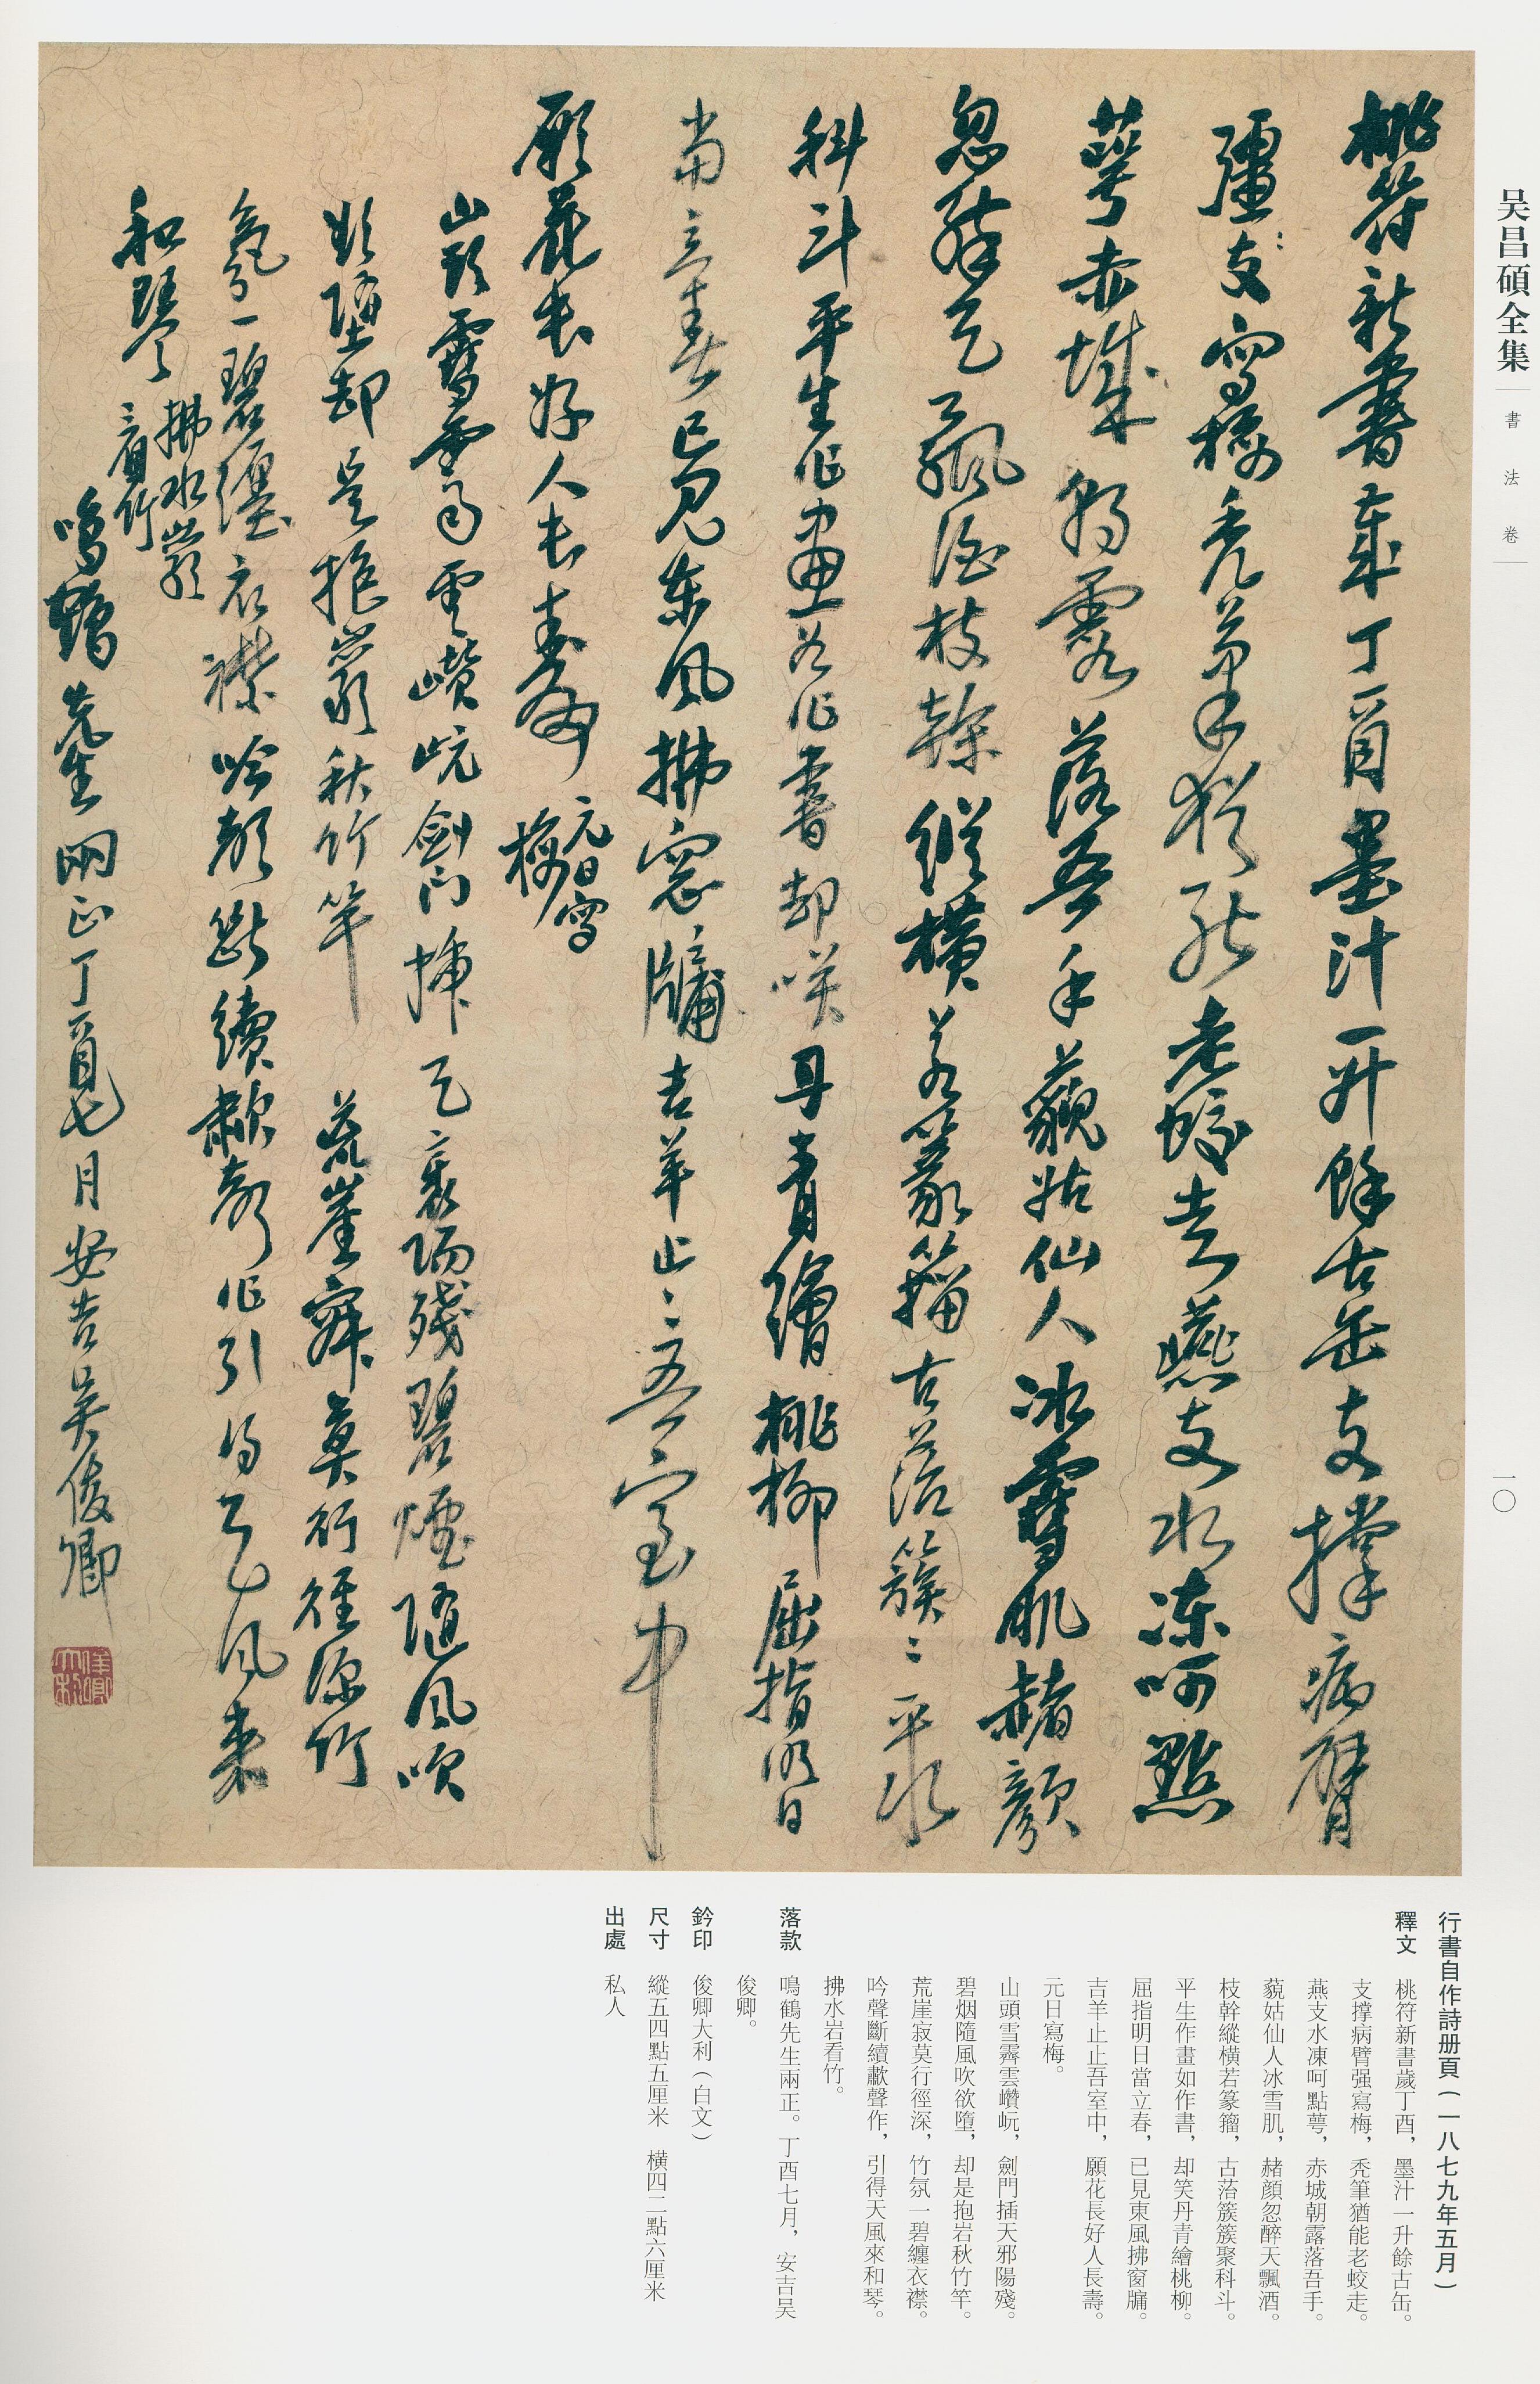 桃符新書歲丁酉墨汁一升餘古缶支撐病臂
彊支寫梅禿筆猶能老蛟走燕支水凍呵點
萼赤城朝露落吾手藐姑仙人冰雪肌赭顏
忽醉天瓢酒枝幹縱橫若篆籀古苔簇〻聚
科斗平生作畫如作書却笑丹青繪桃柳屈指明日
當立春已見東風拂窗牖吉羊止〻吾室中
願花長好人長壽 元日寫梅
山頭雪霽雲巑岏劍門插天衺陽殘碧煙隨風吹
欲墮却是抱巖秋竹竿荒崖寂莫行徑深竹
氛一碧纏衣襟吟聲斷續歗聲作引得天風來
和琴 拂水巖看竹
鳴鶴先生兩正丁酉七月安吉吳俊卿
俊卿大利
吴昌碩全集
書法卷
一〇
行書自作詩册頁（一八七九年五月）
釋文 桃符新書歲丁酉，墨汁一升餘古缶。
支撐病臂强寫梅，禿筆猶能老蛟走。
燕支水凍呵點萼，赤城朝露落吾手。
藐姑仙人冰雪肌，赭顔忽醉天飄酒。
枝幹縱橫若篆籀，古萿簇簇聚科斗。
平生作畫如作書，却笑丹青繪桃柳。
屈指明日當立春，已見東風拂窗牖。
吉羊止止吾室中，願花長好人長壽。
元日寫梅。
山頭雪霽雲巑岏，劍門插天邪陽殘。
碧烟隨風吹欲墮，却是抱岩秋竹竿。
荒崖寂莫行徑深，竹氛一碧纏衣襟。
吟聲斷續歗聲作，引得天風來和琴。
拂水岩看竹。
落款 鳴鶴先生兩正。丁酉七月，安吉吴
俊卿。
鈐印 俊卿大利（白文）
尺寸 縱五四點五厘米 橫四二點六厘米
出處 私人